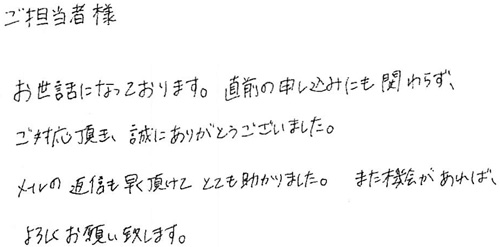 ご担当者様
お世話になっております。直前の申し込みにも関わらず、
ご対応頂き、誠にありがとうございました。
メールの返信も早く頂けてとても助かりました。また機会があれば、
よろしくお願い致します。